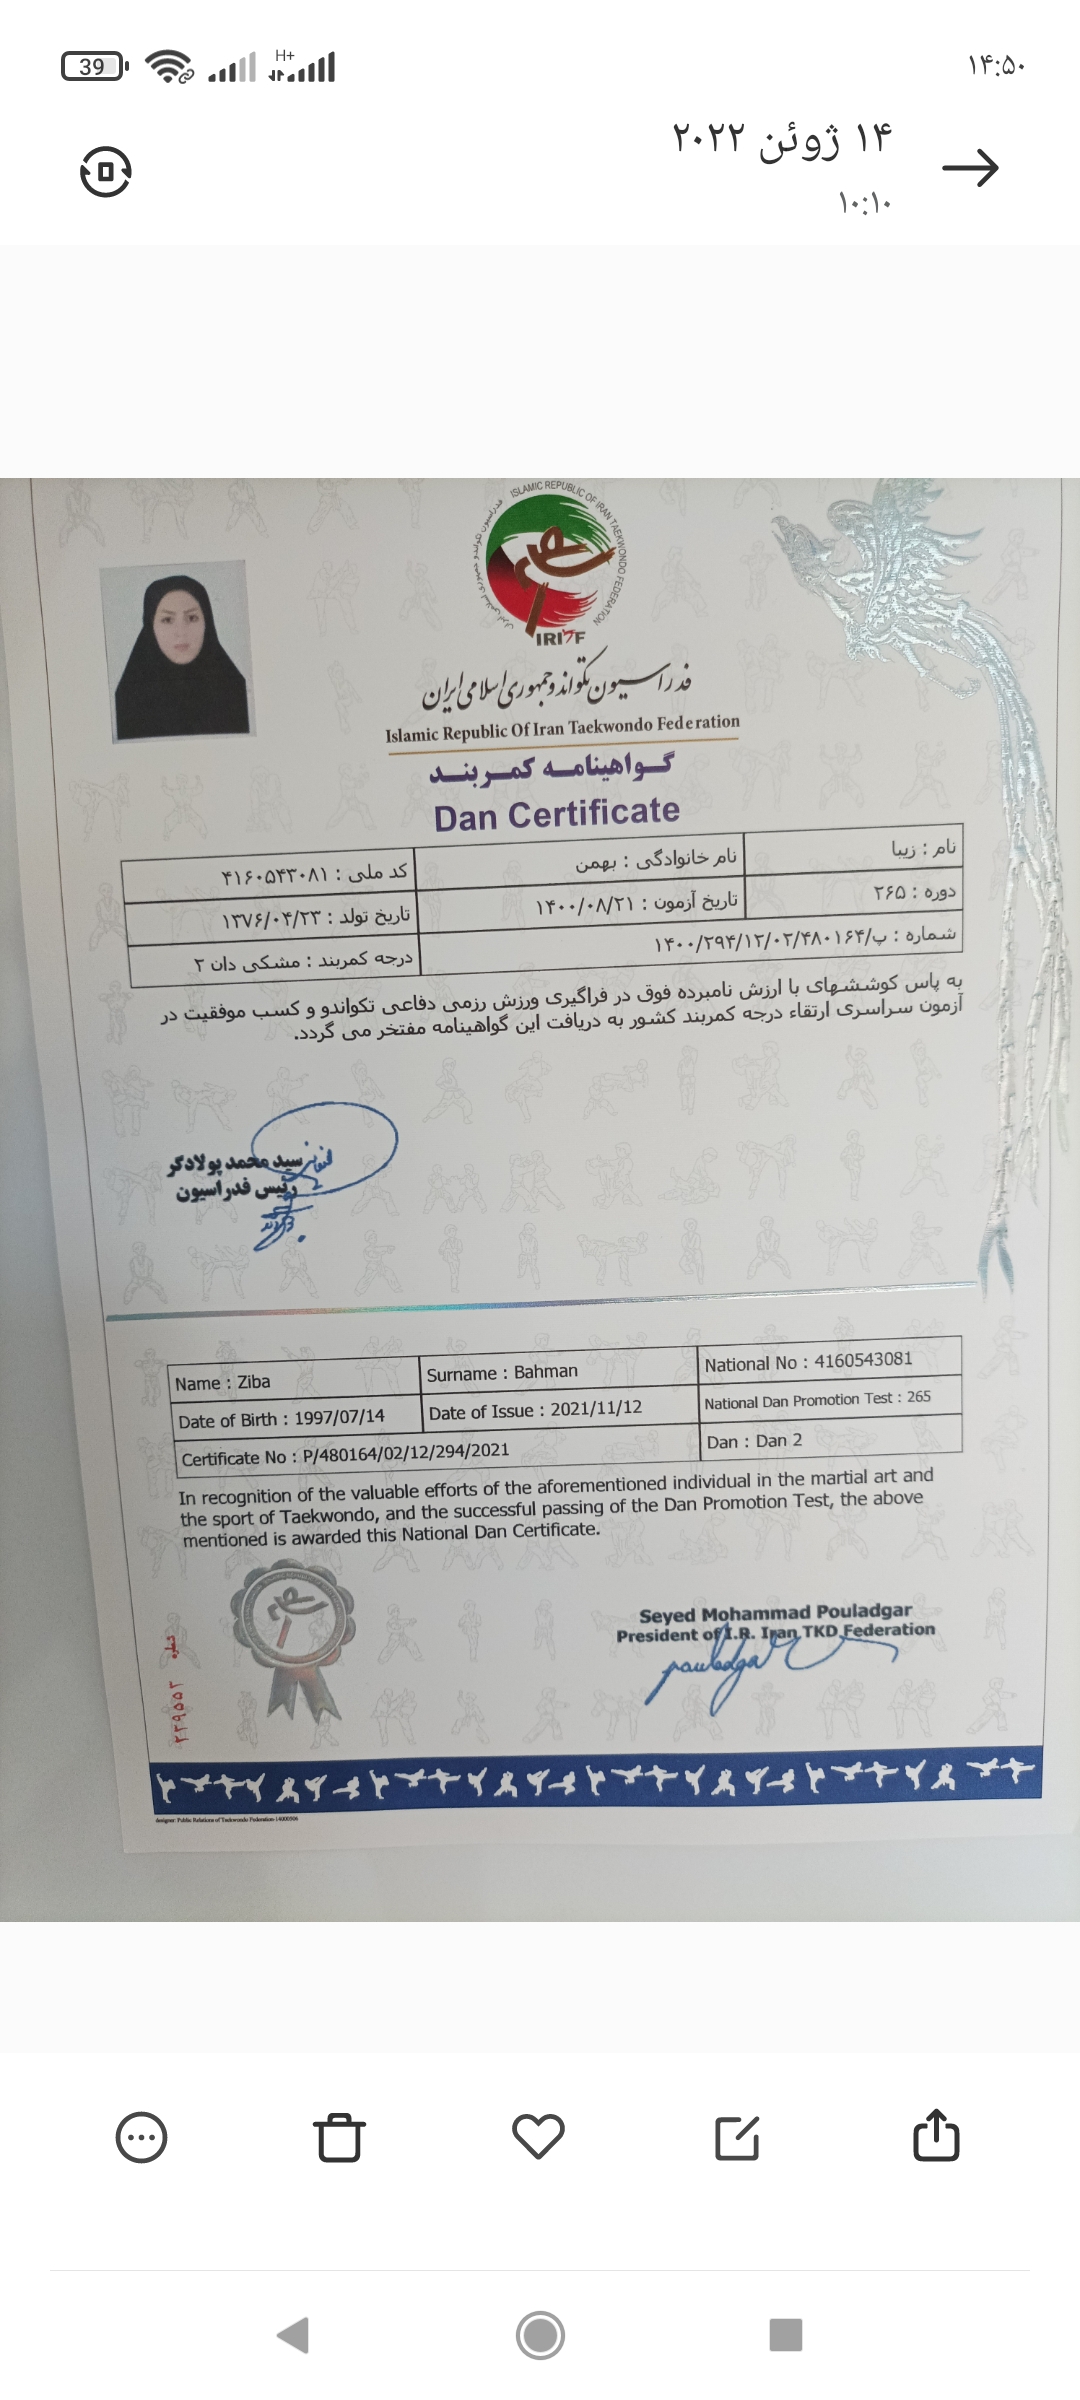 39
H+
۱۴:۵۰
۱۴ ژوئن ۲۰۲۲
۱۰:۱۰
ISLAMIC REPUBLIC OF IRAN TAEKWONDO FEDERATION
فدراسیون تکواندو جمهوری اسلامی ایران
IRITF
فدراسیون تکواندو جمهوری اسلامی ایران
Islamic Republic Of Iran Taekwondo Federation
گواهینامه کمربند
Dan Certificate
نام : زیبا نام خانوادگی : بهمن کد ملی : ۴۱۶۰۵۴۳۰۸۱
دوره : ۲۶۵ تاریخ آزمون : ۱۴۰۰/۰۸/۲۱ تاریخ تولد : ۱۳۷۶/۰۴/۲۳
شماره : پ/۱۴۰۰/۲۹۴/۱۲/۰۲/۴۸۰۱۶۴ درجه کمربند : مشکی دان ۲
به پاس کوششهای با ارزش نامبرده فوق در فراگیری ورزش رزمی دفاعی تکواندو و کسب موفقیت در
آزمون سراسری ارتقاء درجه کمربند کشور به دریافت این گواهینامه مفتخر می گردد.
سید محمد پولادگر
رئیس فدراسیون
Name : Ziba Surname : Bahman National No : 4160543081
Date of Birth : 1997/07/14 Date of Issue : 2021/11/12 National Dan Promotion Test : 265
Certificate No : P/480164/02/12/294/2021 Dan : Dan 2
In recognition of the valuable efforts of the aforementioned individual in the martial art and
the sport of Taekwondo, and the successful passing of the Dan Promotion Test, the above
mentioned is awarded this National Dan Certificate.
Seyed Mohammad Pouladgar
President of I.R. Iran TKD Federation
pouladgar
۲۳۹۵۵۲
designer: Public Relations of Taekwondo Federation-14000906